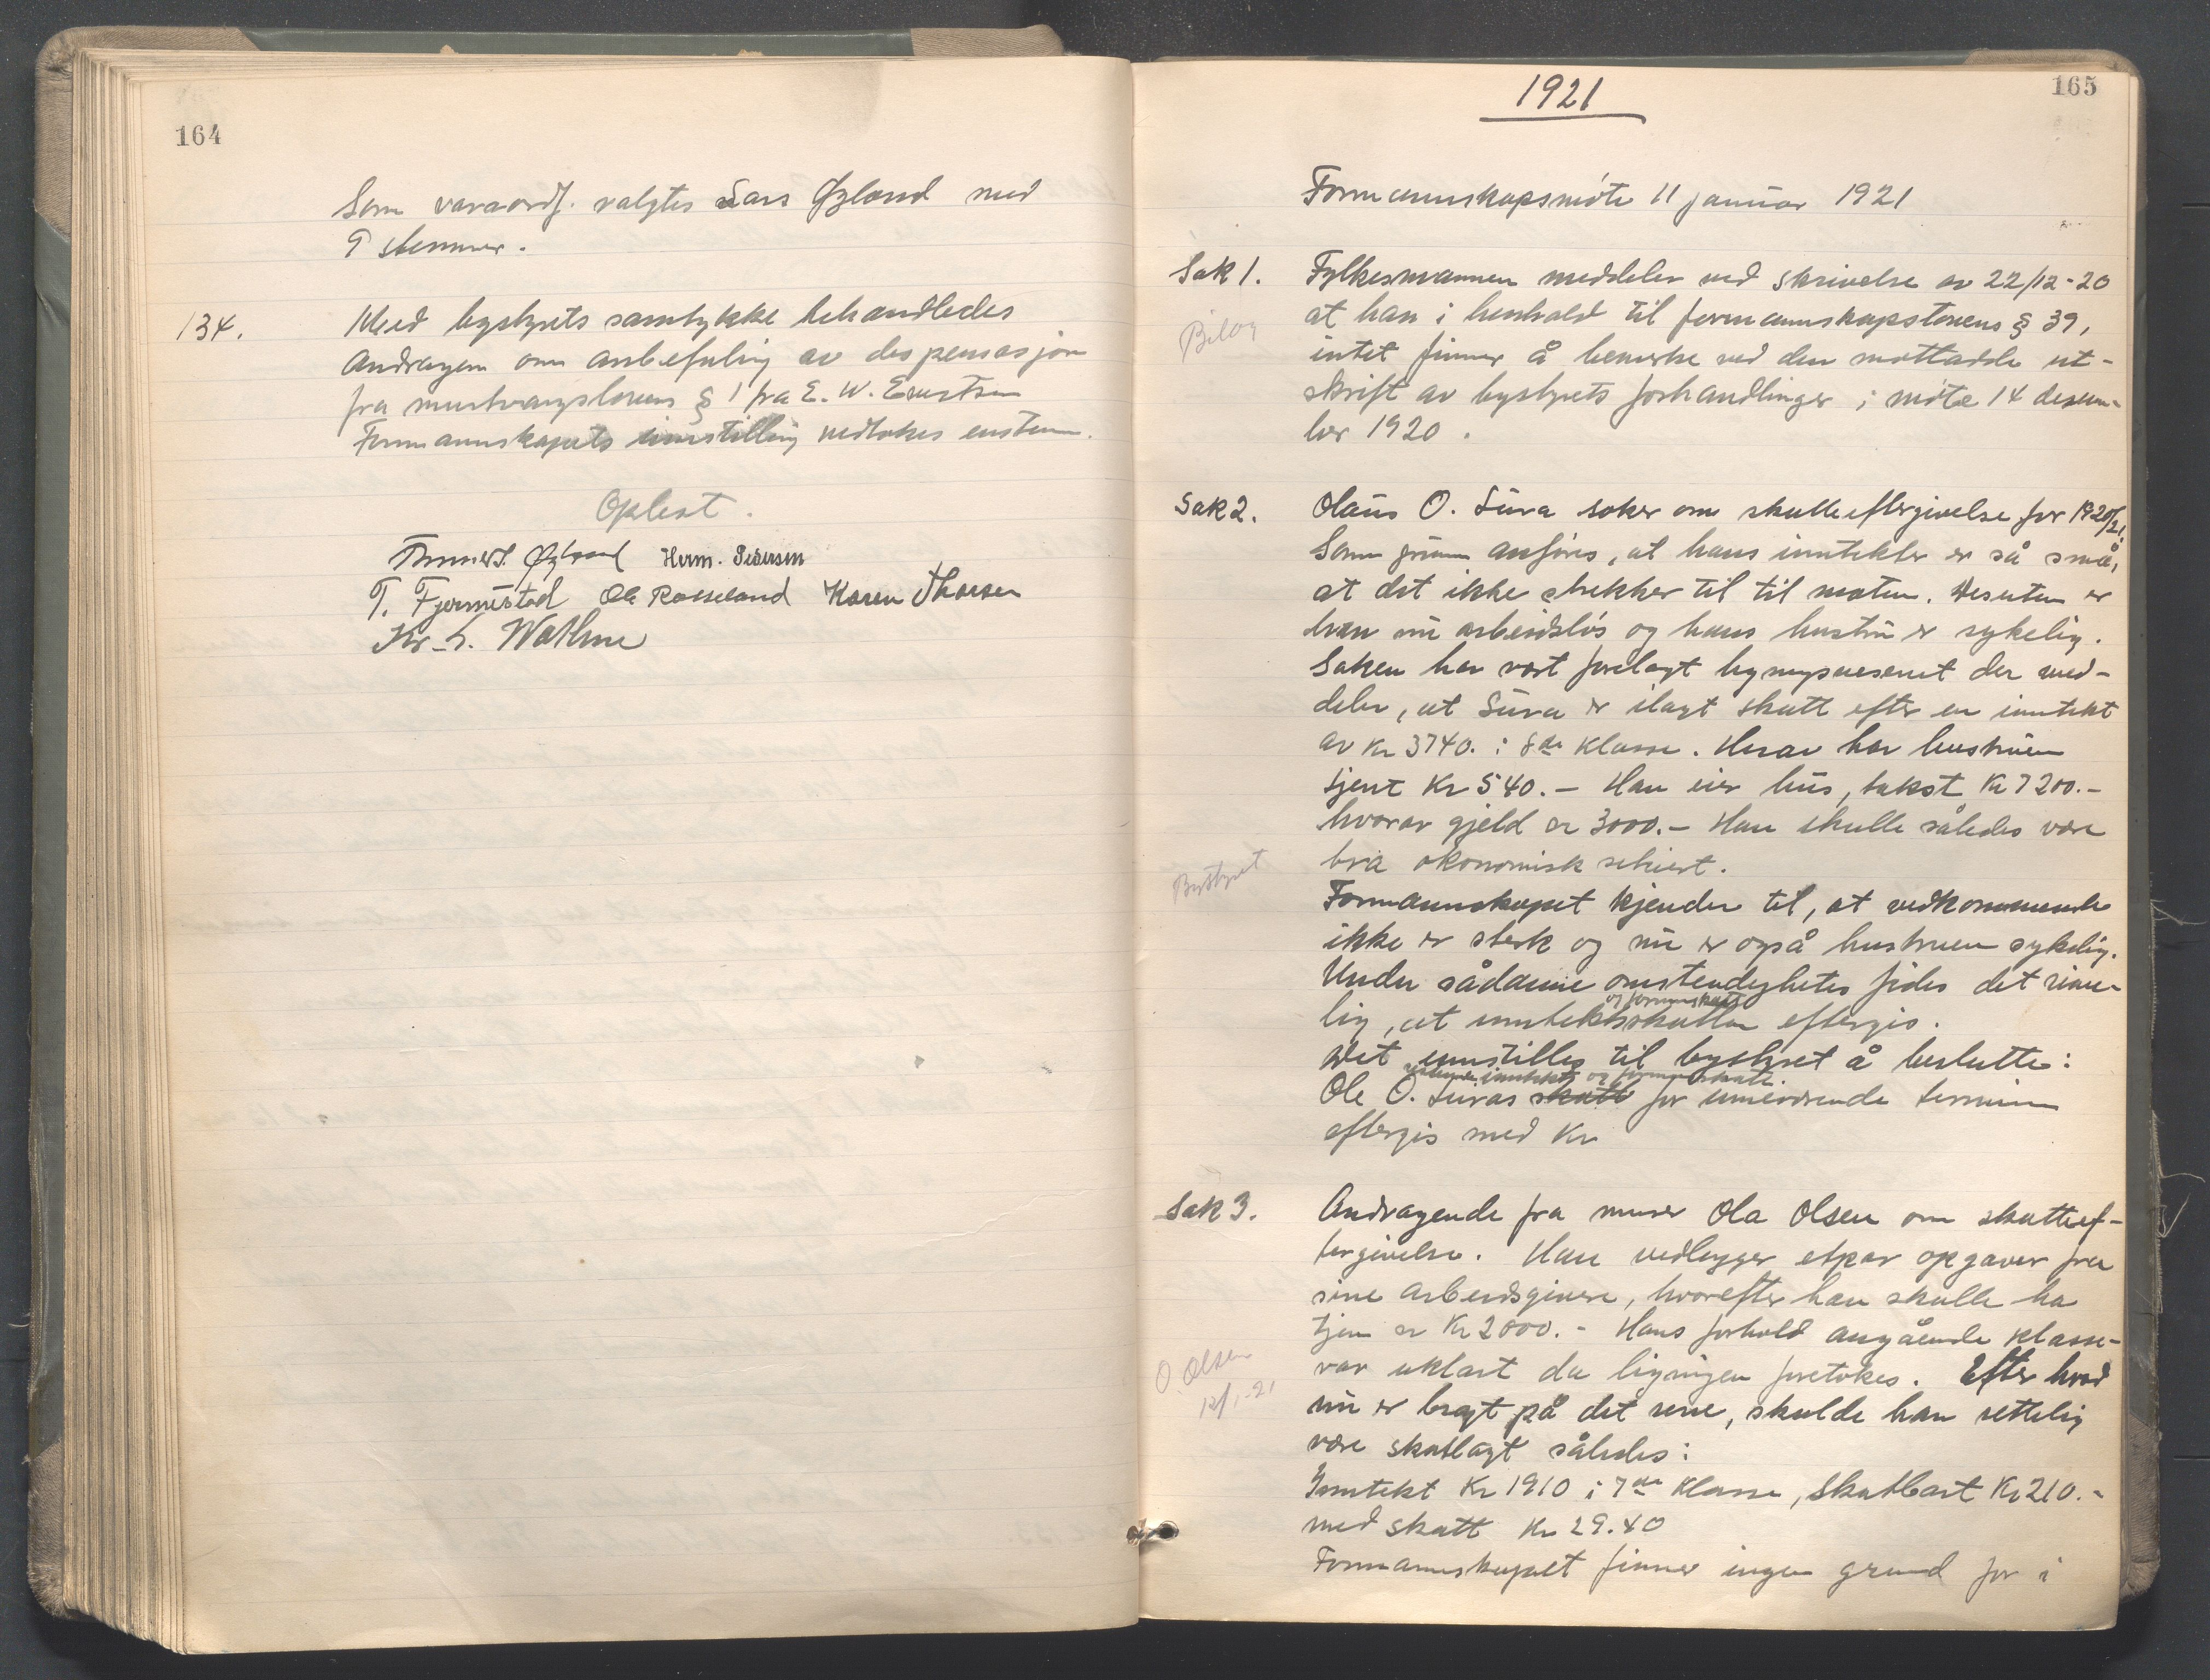 164
Som varaordf. valgtes Lars Øgland med
9 stemmer.
134.
Med bystyrets samtykke behandledes
Andragen om anbefaling av dispensasjon
fra § 1 fra E. W. Evertsen
Formannskapets innstilling vedtokes enstem.
Oplest.
Øgland Herm. Pedersen
T. Fjermestad Ole Rosseland Karen Thorsen
Kr. S. Wathne
165
1921
Formannskapsmøte 11 januar 1921
Sak 1.
Fylkesmannen meddeler ved skrivelse av 22/12-20
at han i henhold til formannskapslovens § 39,
Bilag
intet finner å bemerke ved den mottadde ut-
skrift av bystyrets forhandlinger i møte 14 desem-
ber 1920.
Sak 2.
Olaus O. Sura søker om skatteeftergivelse for 1920/21.
Som grunn anføres, at hans inntekter er så små,
at det ikke strekker til til maten. Desuten er
han nu arbeidsløs og hans hustru er sykelig.
Saken har vært forelagt ligningsvesenet der med-
deler, at Sura er ilagt skatt efter en inntekt
av Kr 3740. i 8de klasse. Herav har hustruen
tjent Kr 540.- Han eier hus, takst Kr 7200.-
hvorav gjeld er 3000.- Han skulle således være
bra økonomisk situert.
Bystyret
Formannskapet kjender til, at vedkommende
ikke er sterk og nu er også hustruen sykelig.
Under sådanne omstendigheter findes det rime-
og formuesskatt
lig, at inntektsskatten eftergis.
Det innstilles til bystyret å beslutte:
inntekts og formuesskatt
Ole O. Suras skatt for inneværende termin
eftergis med Kr
Sak 3.
Andragende fra murer Ola Olsen om skatteef-
tergivelse. Han vedlegger etpar opgaver fra
sine arbeidsgivere, hvorefter han skulle ha
tjen er Kr 2000.- Hans forhold angående klasse-
O. Olsen
12/1-21
var uklart da ligningen foretokes. Efter hvad
nu er bragt på det rene, skulde han rettelig
være skatlagt således:
Inntekt Kr 1910 i 7de klasse, skatbart Kr 210.-
med skatt Kr 29.40
Formannskapet finner ingen grund for i